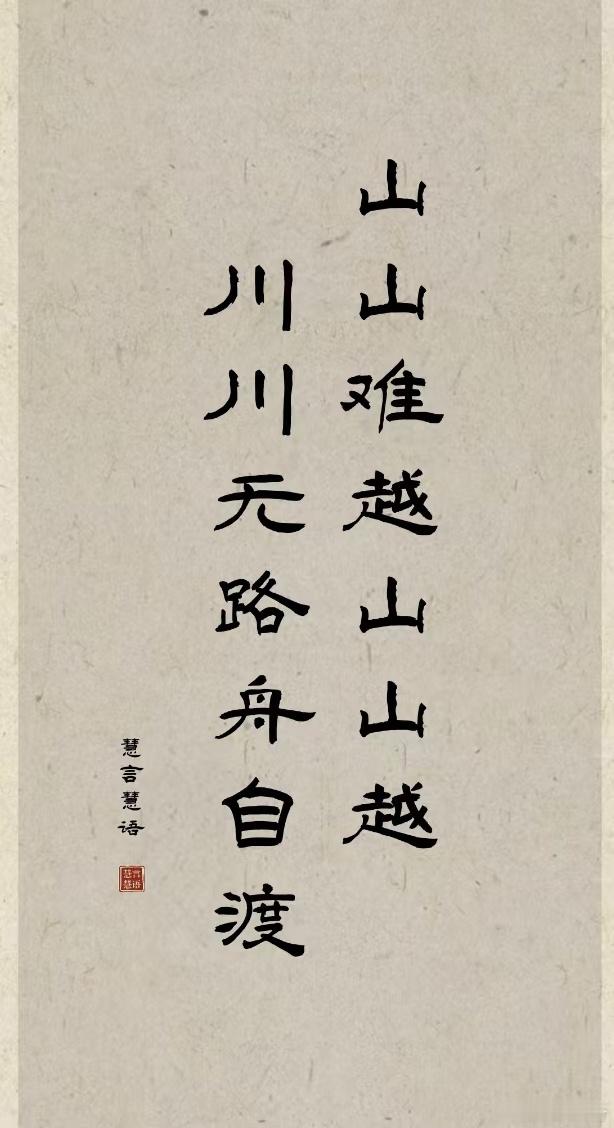 山山难越山山越
川川无路舟自渡
慧言慧语